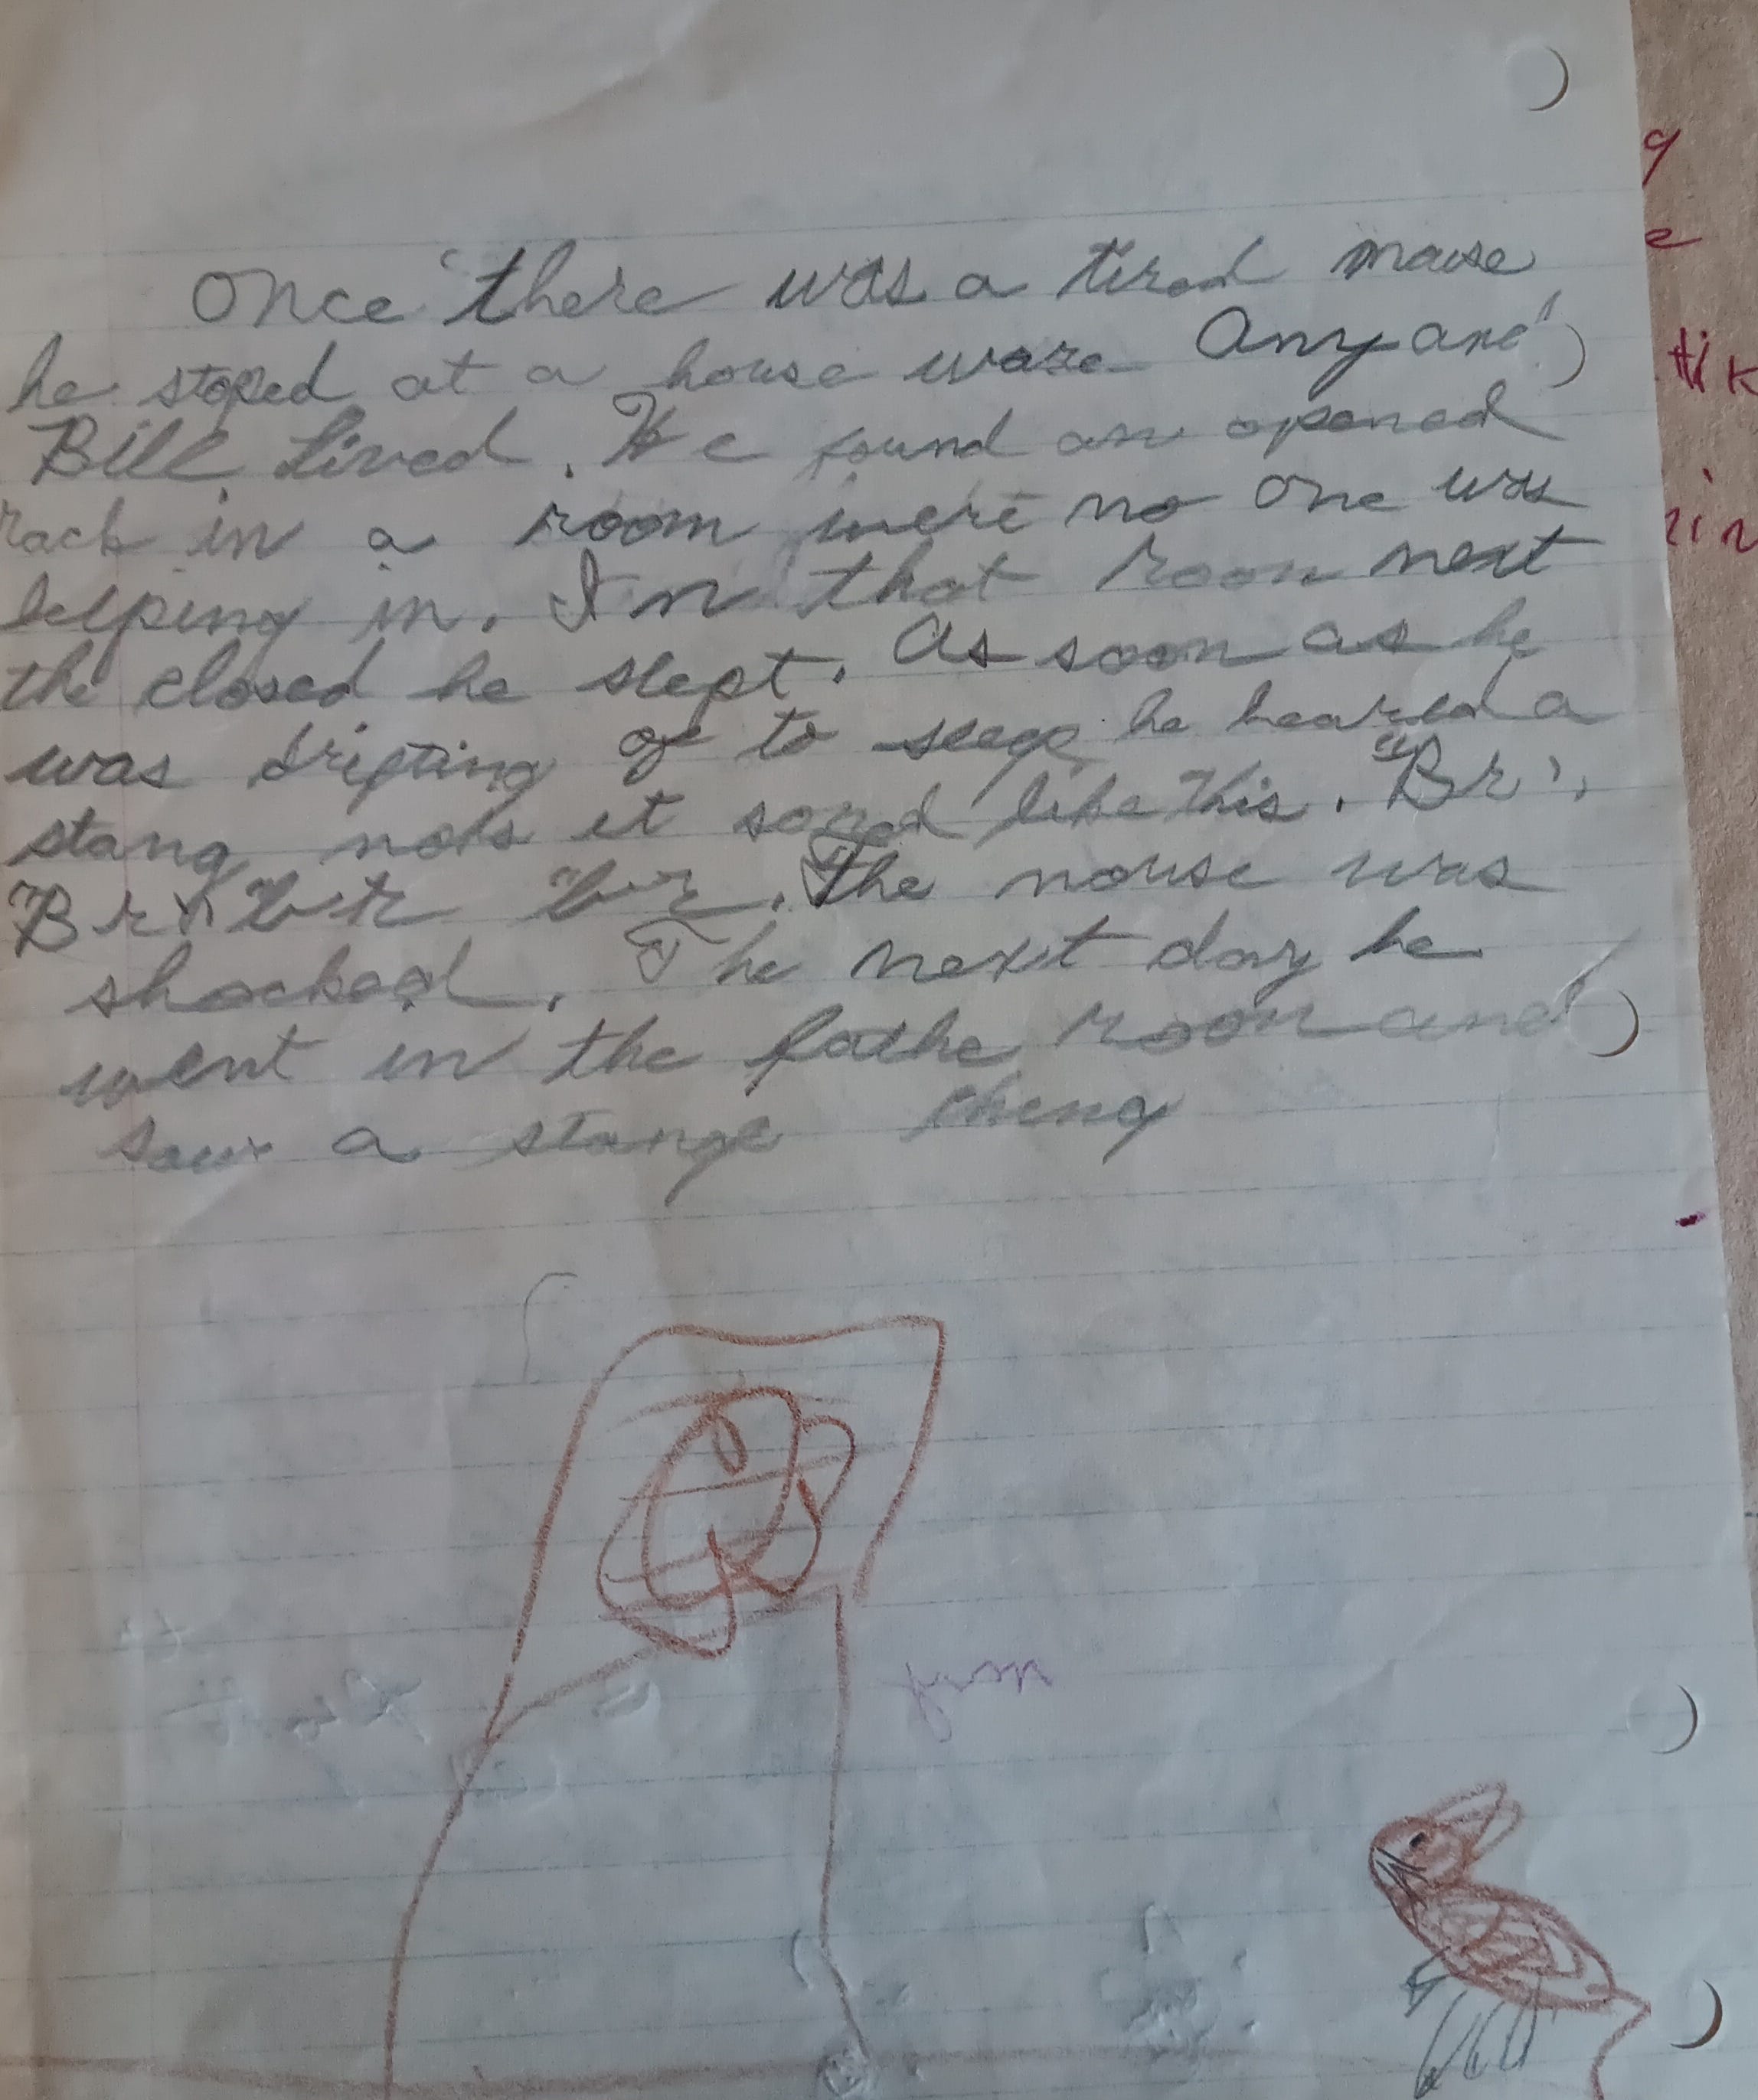 Once there was a tired mouse
he stoped at a house ware Any and
Bill Lived. He found an opened
rack in a room were no one was
lelping in. In that room next
the closed he slept. As soon as he
was drifting of to sleep he heared a
stang nois it sound like this. "Br",
Br" br br. The mouse was
shocked. The next day he
went in the fathe room and
saw a stange theng